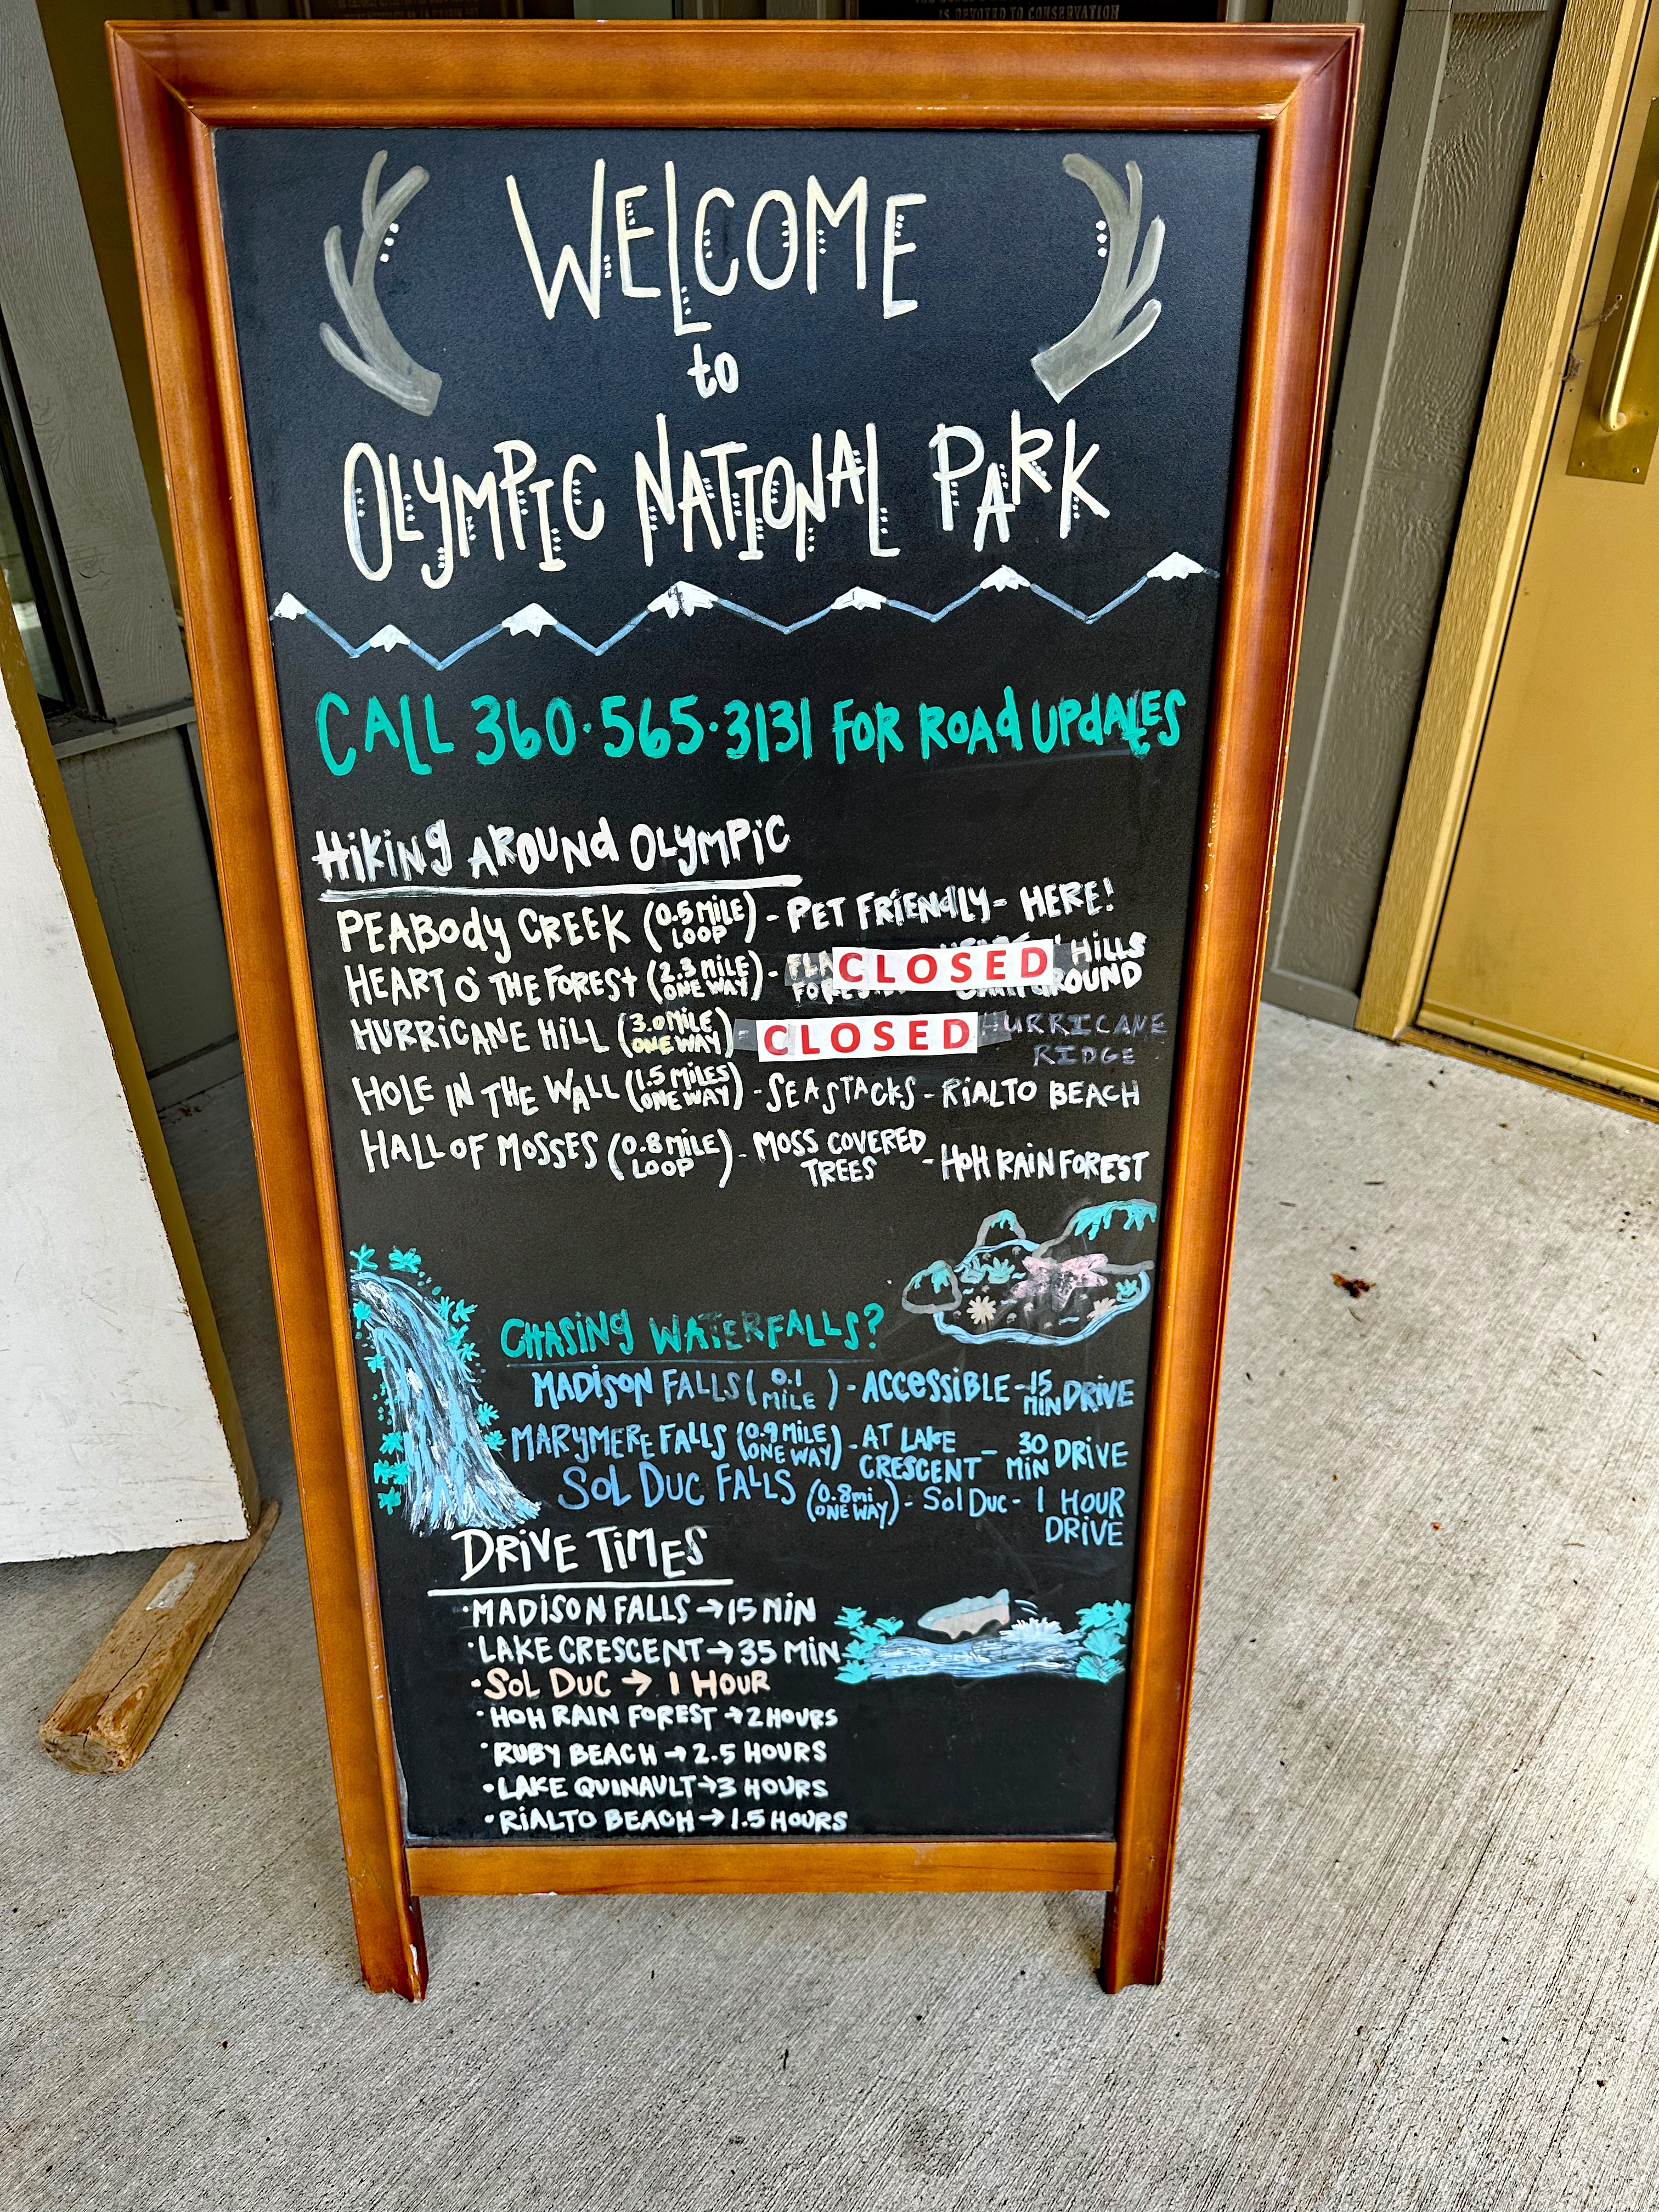 IS DEVOTED TO CONSERVATION
WELCOME
to
OLYMPIC NATIONAL PARK
CALL 360·565·3131 FOR ROAD UPDATES
HIKING AROUND OLYMPIC
PEABODY CREEK (0.5 MILE LOOP) - PET FRIENDLY - HERE!
HEART O' THE FOREST (2.3 MILE ONE WAY) - CLOSED HILLS
HURRICANE HILL (3.0 MILE ONE WAY) - CLOSED HURRICANE RIDGE
HOLE IN THE WALL (1.5 MILES ONE WAY) - SEA STACKS - RIALTO BEACH
HALL OF MOSSES (0.8 MILE LOOP) - MOSS COVERED TREES - HOH RAIN FOREST
CHASING WATERFALLS?
MADISON FALLS (0.1 MILE) - ACCESSIBLE - 15 MIN DRIVE
MARYMERE FALLS (0.9 MILE ONE WAY) - AT LAKE CRESCENT - 30 MIN DRIVE
SOL DUC FALLS (0.8 mi ONE WAY) - Sol Duc - 1 HOUR DRIVE
DRIVE TIMES
·MADISON FALLS → 15 MIN
·LAKE CRESCENT → 35 MIN
·SOL DUC → 1 HOUR
·HOH RAIN FOREST → 2 HOURS
·RUBY BEACH → 2.5 HOURS
·LAKE QUINAULT → 3 HOURS
·RIALTO BEACH → 1.5 HOURS